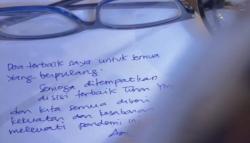 Doa terbaik saya untuk semua
yang berpulang.
Semoga ditempatkan
di sisi terbaik Tuhan
dan kita semua diberi
kekuatan dan kesabaran
melewati pandemi